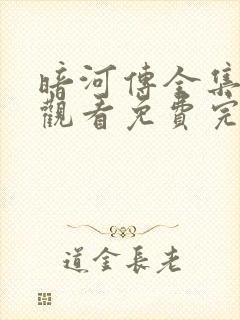 暗河傳全集
觀看免費完
道金長老